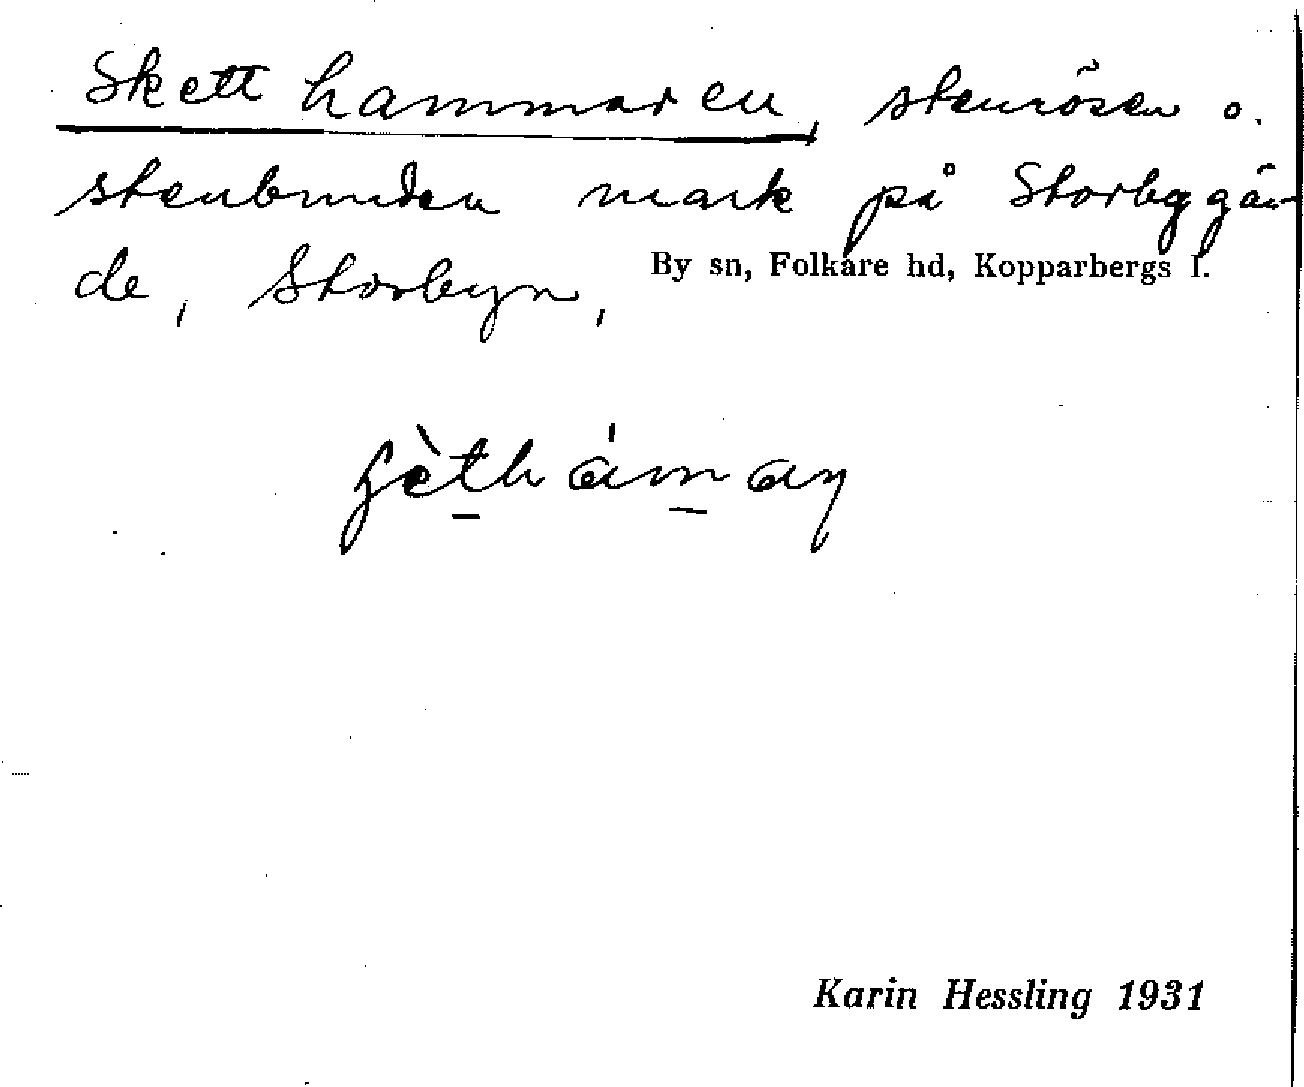 Skett hammaren, stenrösen o.
stenbunden mark på Storbygär
de, Storbyn,
By sn, Folkare hd, Kopparbergs l.
Karin Hessling 1931